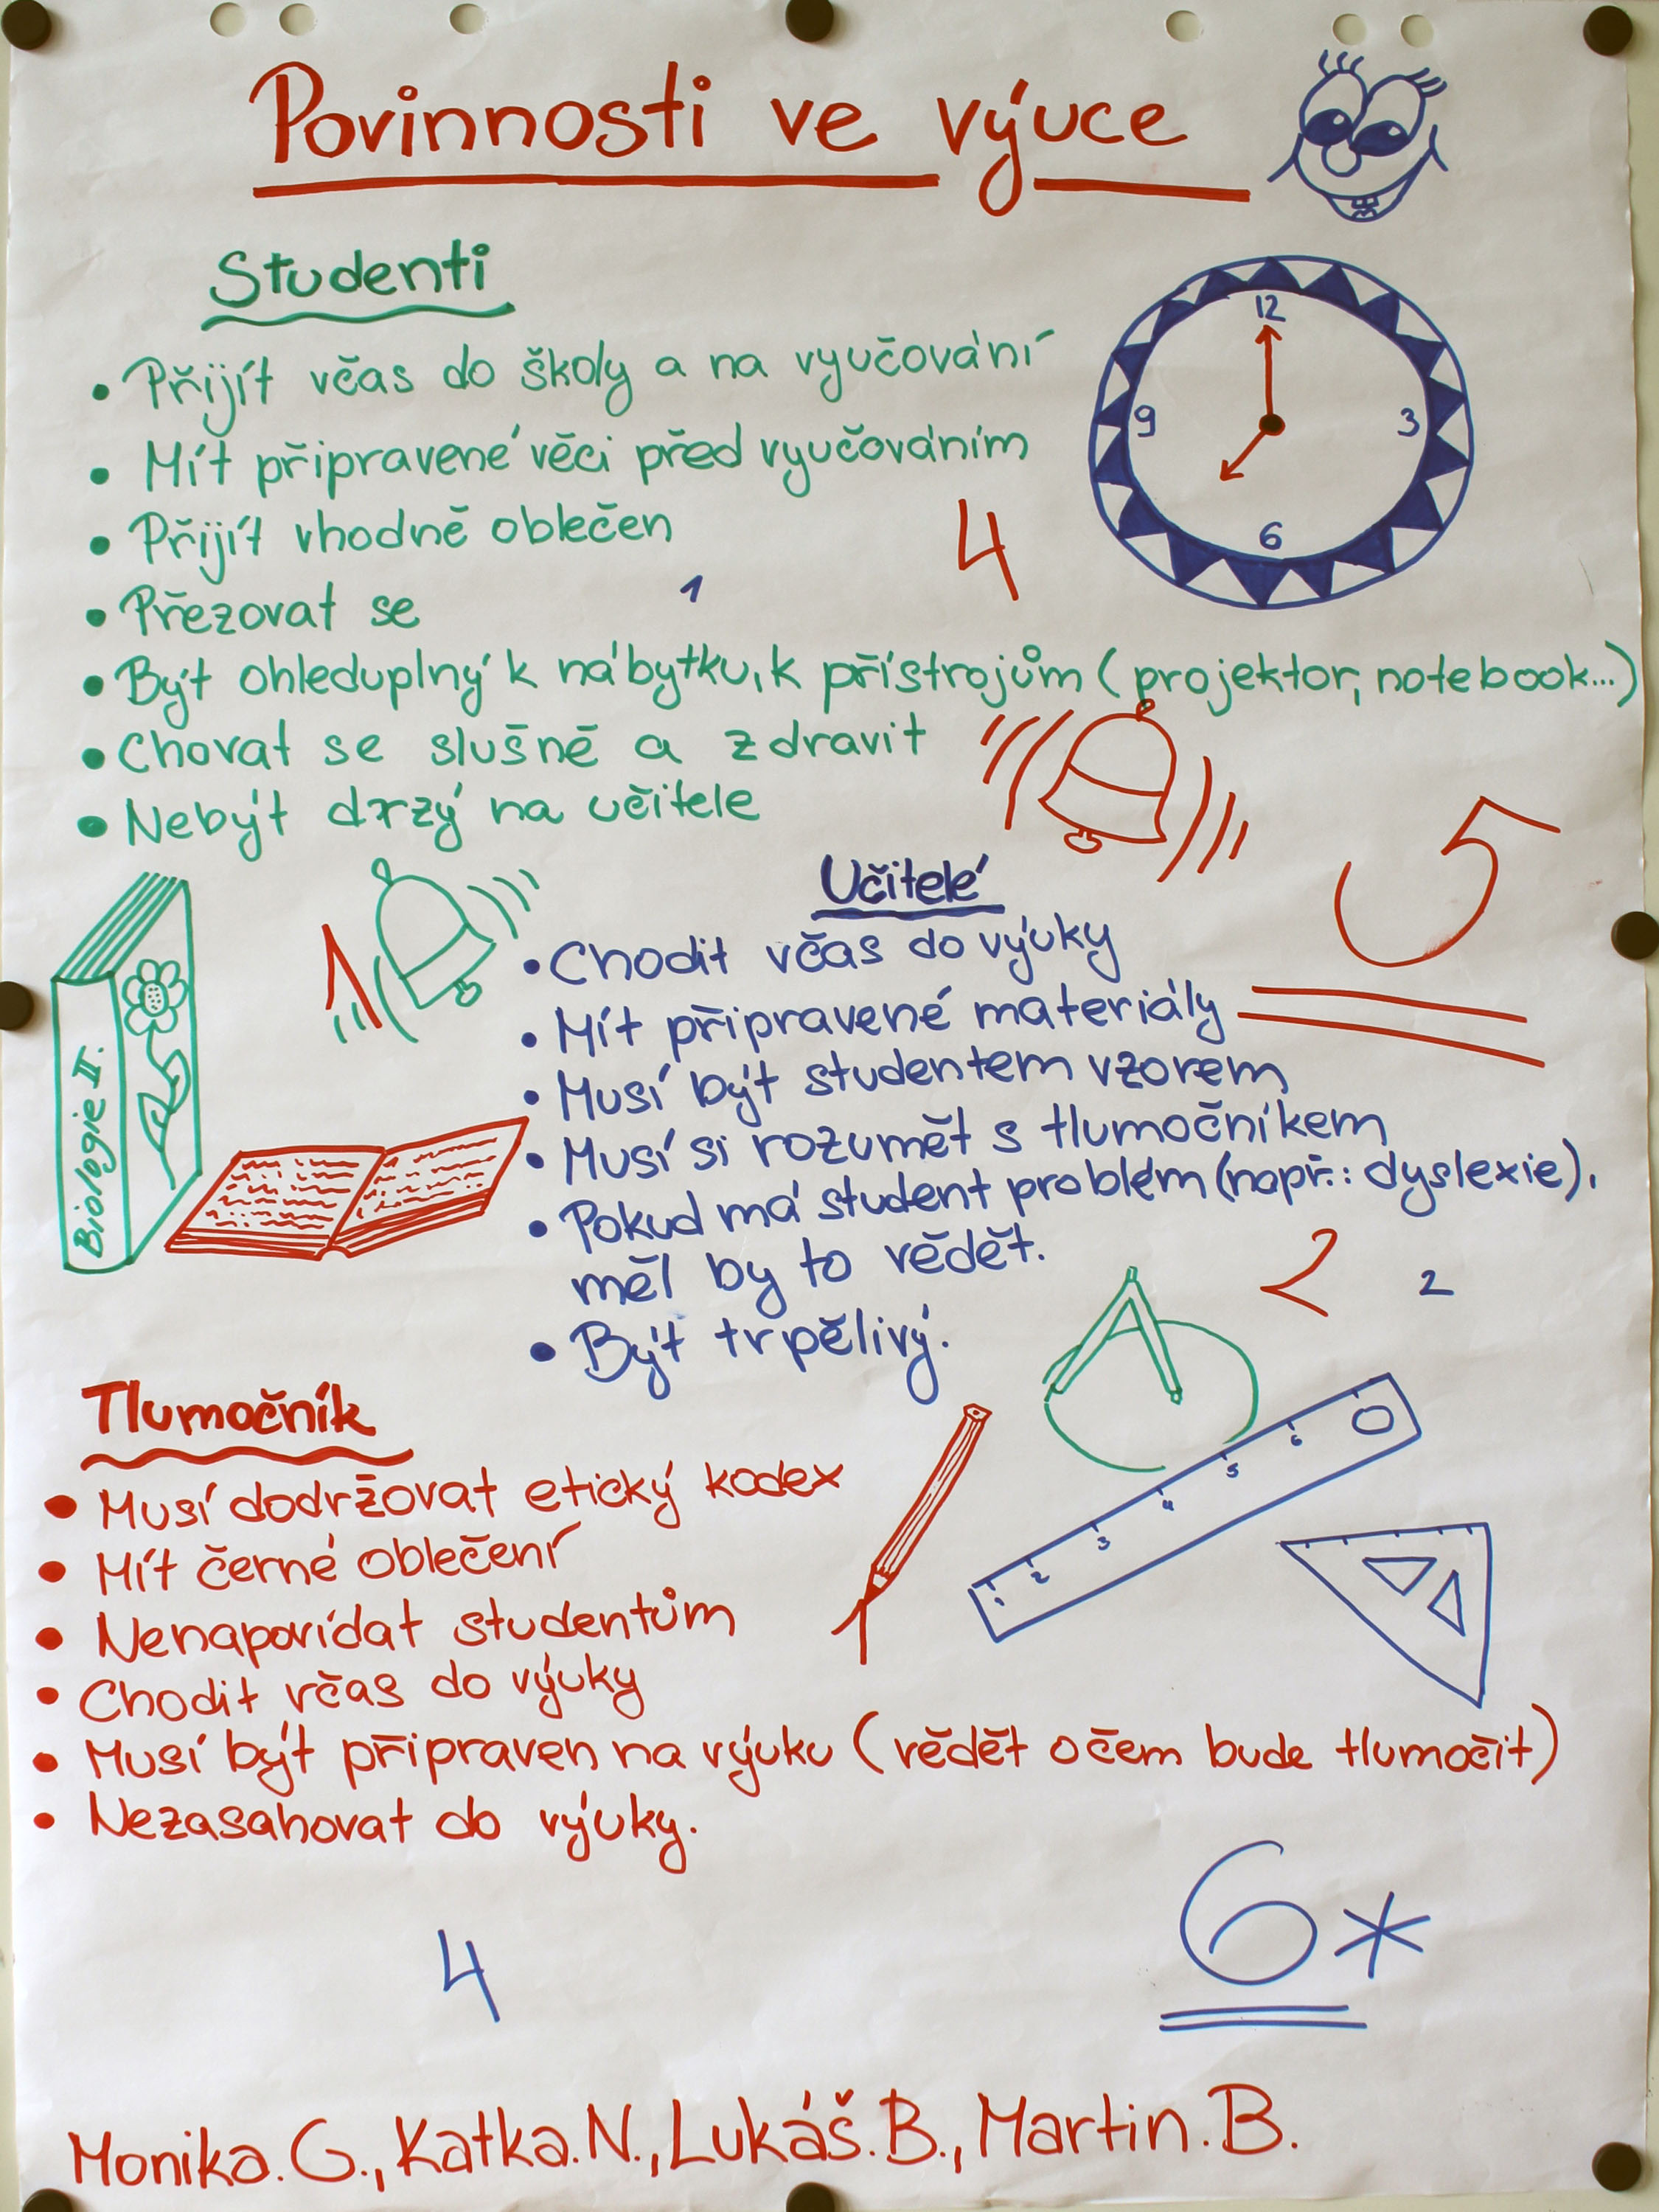 Povinnosti ve výuce
Studenti
• Přijít včas do školy a na vyučování
• Mít připravené věci před vyučováním
• Přijít vhodně oblečen
• Přezovat se
• Být ohleduplný k nábytku, k přístrojům (projektor, notebook...)
• Chovat se slušně a zdravit
• Nebýt drzý na učitele
12
3
6
9
4
1
5
1
Biologie II.
Učitelé
• Chodit včas do výuky
• Mít připravené materiály
• Musí být studentem vzorem
• Musí si rozumět s tlumočníkem
• Pokud má student problém (např.: dyslexie),
měl by to vědět.
• Být trpělivý.
2
2
1 2 3 4 5 6
1
Tlumočník
• Musí dodržovat etický kodex
• Mít černé oblečení
• Nenapovídat studentům
• Chodit včas do výuky
• Musí být připraven na výuku (vědět o čem bude tlumočit)
• Nezasahovat do výuky.
4
6*
Monika.G., Katka.N., Lukáš.B., Martin.B.